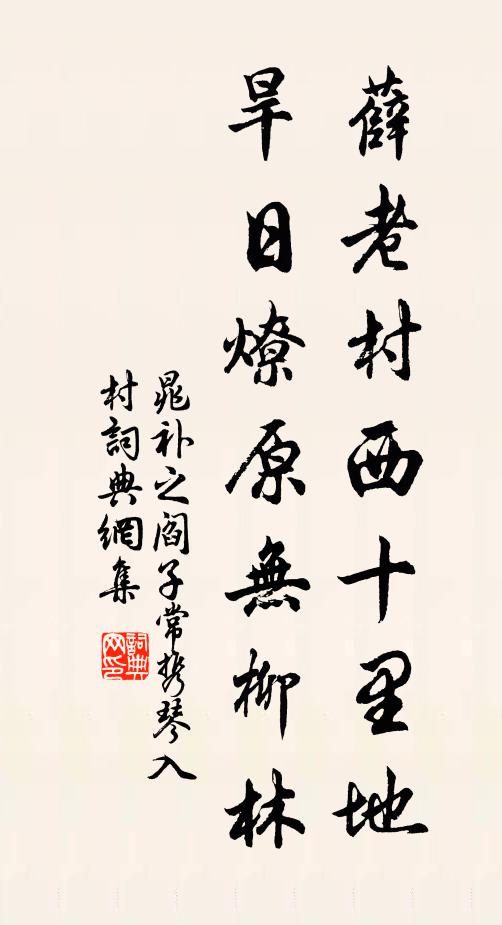 薛老村西十里地
旱日燎原無柳林
晁补之閻子常攜琴入
村詞典網集
詞典
网印